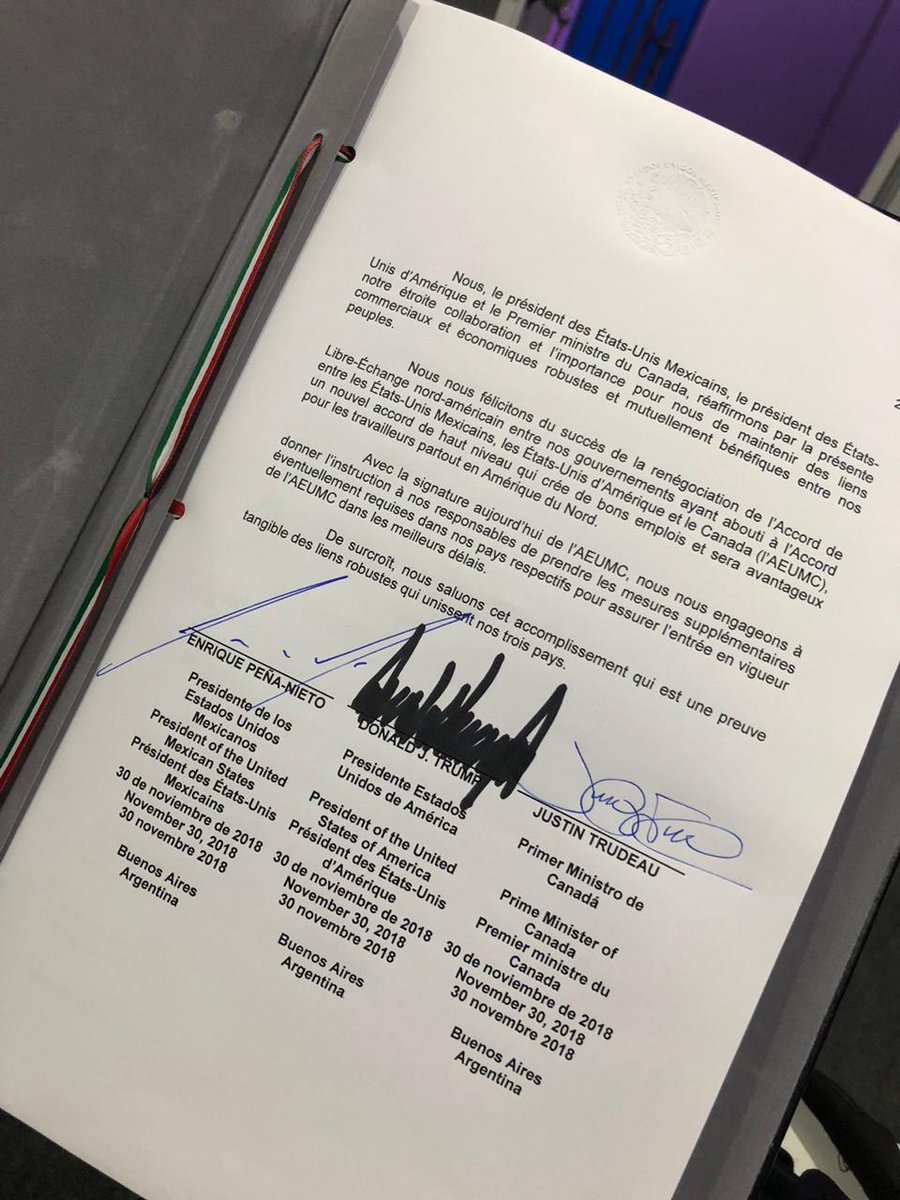 2
Nous, le président des États-Unis Mexicains, le président des États-
Unis d'Amérique et le Premier ministre du Canada, réaffirmons par la présente
notre étroite collaboration et l'importance pour nous de maintenir des liens
commerciaux et économiques robustes et mutuellement bénéfiques entre nos
peuples.
Nous nous félicitons du succès de la renégociation de l'Accord de
Libre-Échange nord-américain entre nos gouvernements ayant abouti à l'Accord
entre les États-Unis Mexicains, les États-Unis d'Amérique et le Canada (l'AEUMC),
un nouvel accord de haut niveau qui crée de bons emplois et sera avantageux
pour les travailleurs partout en Amérique du Nord.
Avec la signature aujourd'hui de l'AEUMC, nous nous engageons à
donner l'instruction à nos responsables de prendre les mesures supplémentaires
éventuellement requises dans nos pays respectifs pour assurer l'entrée en vigueur
de l'AEUMC dans les meilleurs délais.
De surcroît, nous saluons cet accomplissement qui est une preuve
tangible des liens robustes qui unissent nos trois pays.
ENRIQUE PEÑA-NIETO
Presidente de los
Estados Unidos
Mexicanos
President of the United
Mexican States
Président des États-Unis
Mexicains
30 de noviembre de 2018
November 30, 2018
30 novembre 2018
Buenos Aires
Argentina
DONALD J. TRUMP
Presidente Estados
Unidos de América
President of the United
States of America
Président des États-Unis
d'Amérique
30 de noviembre de 2018
November 30, 2018
30 novembre 2018
Buenos Aires
Argentina
JUSTIN TRUDEAU
Primer Ministro de
Canadá
Prime Minister of
Canada
Premier ministre du
Canada
30 de noviembre de 2018
November 30, 2018
30 novembre 2018
Buenos Aires
Argentina